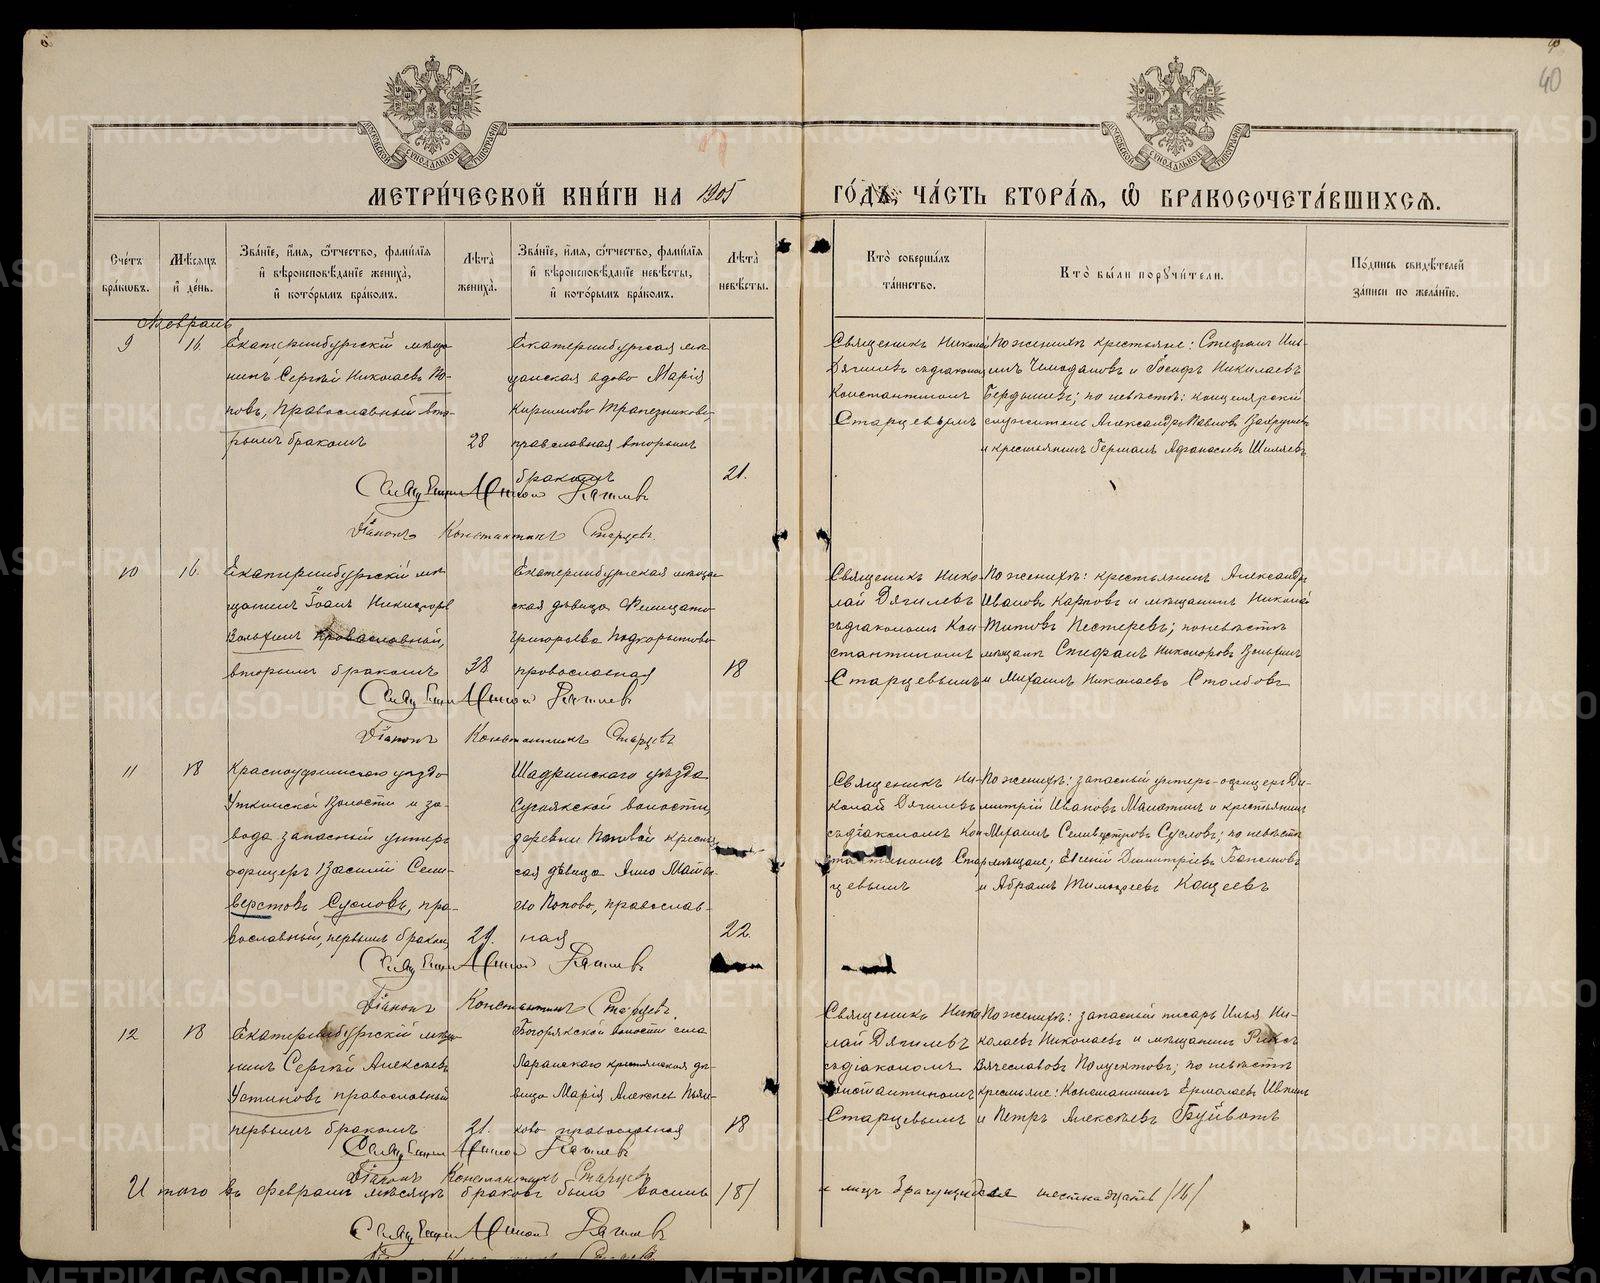 40
МОСКОВСКОЙ СѴНОДАЛЬНОЙ ТИПОГРАФІИ
МОСКОВСКОЙ СѴНОДАЛЬНОЙ ТИПОГРАФІИ
МЕТРИ́ЧЕСКОЙ КНИ́ГИ НА 1905
ГО́ДЪ, ЧА́СТЬ ВТОРА́Я, Ѡ҆ БРАКОСОЧЕТА́ВШИХСѦ.
Сче́тъ бра́ковъ.
Мѣ́сяцъ и҆ де́нь.
Зва́нїе, и҆́мя, ѻ҆́тчество, фами́лїя
и҆ вѣроисповѣ́данїе жениха̀,
и҆ кото́рымъ бра́комъ.
Лѣ́та жениха̀.
Зва́нїе, и҆́мя, ѻ҆́тчество, фами́лїя
и҆ вѣроисповѣ́данїе невѣ́сты,
и҆ кото́рымъ бра́комъ.
Лѣ́та невѣ́сты.
Кто̀ соверша́лъ
та́инство.
Кто̀ бы́ли порꙋчи́тели.
По́дпись свидѣ́телей
за́писи по жела́нїю.
Февраль
9
16.
Екатеринбургскій мѣща-
нинъ Сергѣй Николаевъ По-
повъ, православный вто-
рымъ бракомъ
28
Екатеринбургская мѣ-
щанская вдова Марія
Кириллова Трапезникова,
православная вторымъ
бракомъ
21.
Священникъ Николай
Дягилевъ съ діакономъ
Константиномъ
Старцевымъ
По женихѣ крестьяне: Стефанъ
Чемодановъ и Іосифъ Николаевъ
Бердышевъ; по невѣстѣ: канцелярскій
служитель Александръ Павловъ
и крестьянинъ Германъ Афанасьевъ Шиляевъ
Свящ Николай Дягилевъ
Діаконъ Константинъ Старцевъ.
10
16.
Екатеринбургскій мѣ-
щанинъ Іоанъ Никифоровъ
Вольхинъ православный,
вторымъ бракомъ
38
Екатеринбургская мѣщан-
ская дѣвица Фелицата
Григорьева Подкорытова
православная
18
Священникъ Нико-
лай Дягилевъ
съ діакономъ Кон-
стантиномъ
Старцевымъ
По женихѣ: крестьянинъ Александръ
Ивановъ Карповъ и мѣщанинъ Николай
Титовъ Пестеревъ; по невѣстѣ
мѣщане Стефанъ Никифоровъ Вольхинъ
и Михаилъ Николаевъ Столбовъ
Свящ Николай Дягилевъ
Діаконъ Константинъ Старцевъ
11
18
Красноуфимскаго уѣзда
Уткинской Волости и за-
вода запасный унтеръ
офицеръ Василій Сели-
верстовъ Сусловъ, пра-
вославный, первымъ бракомъ,
29.
Шадринскаго уѣзда
Сугоякской волости,
деревни Поповой крестьян-
ская дѣвица Анна Матѳѣ-
ева Попова, православ-
ная
22
Священникъ Ни-
колай Дягилевъ
съ діакономъ Кон-
стантиномъ Стар-
цевымъ
По женихѣ: запасный унтеръ-офицеръ Ди-
митрій Ивановъ Малыгинъ и крестьянинъ
Михаилъ Селивестровъ Сусловъ; по невѣстѣ
мѣщане; Евгеній Димитріевъ
и Абрамъ Тимофеевъ Кощеевъ
Свящ Николай Дягилевъ
Діаконъ Константинъ Старцевъ.
12
18
Екатеринбургскій мѣща-
нинъ Сергѣй Алексѣевъ
Устиновъ православный
первымъ бракомъ
21.
Богорякской волости села
Ларинскаго крестьянская дѣ-
вица Марія Алексѣева Пьян-
кова православная
18
Священникъ Нико-
лай Дягилевъ
съ діакономъ
Константиномъ
Старцевымъ
По женихѣ: запасный писарь Илья Ни-
колаевъ Николаевъ и мѣщанинъ
Вячеславовъ Полуектовъ; по невѣстѣ
крестьяне: Константинъ Ермолаевъ
и Петръ Алексѣевъ
Свящ Николай Дягилевъ
Діаконъ Константинъ Старцевъ
Итого въ февралѣ мѣсяцѣ браковъ было восемь /8/
и лицъ брачущихся шестнадцать /16/
Свящ Николай Дягилевъ
METRIKI.GASO-URAL.RU